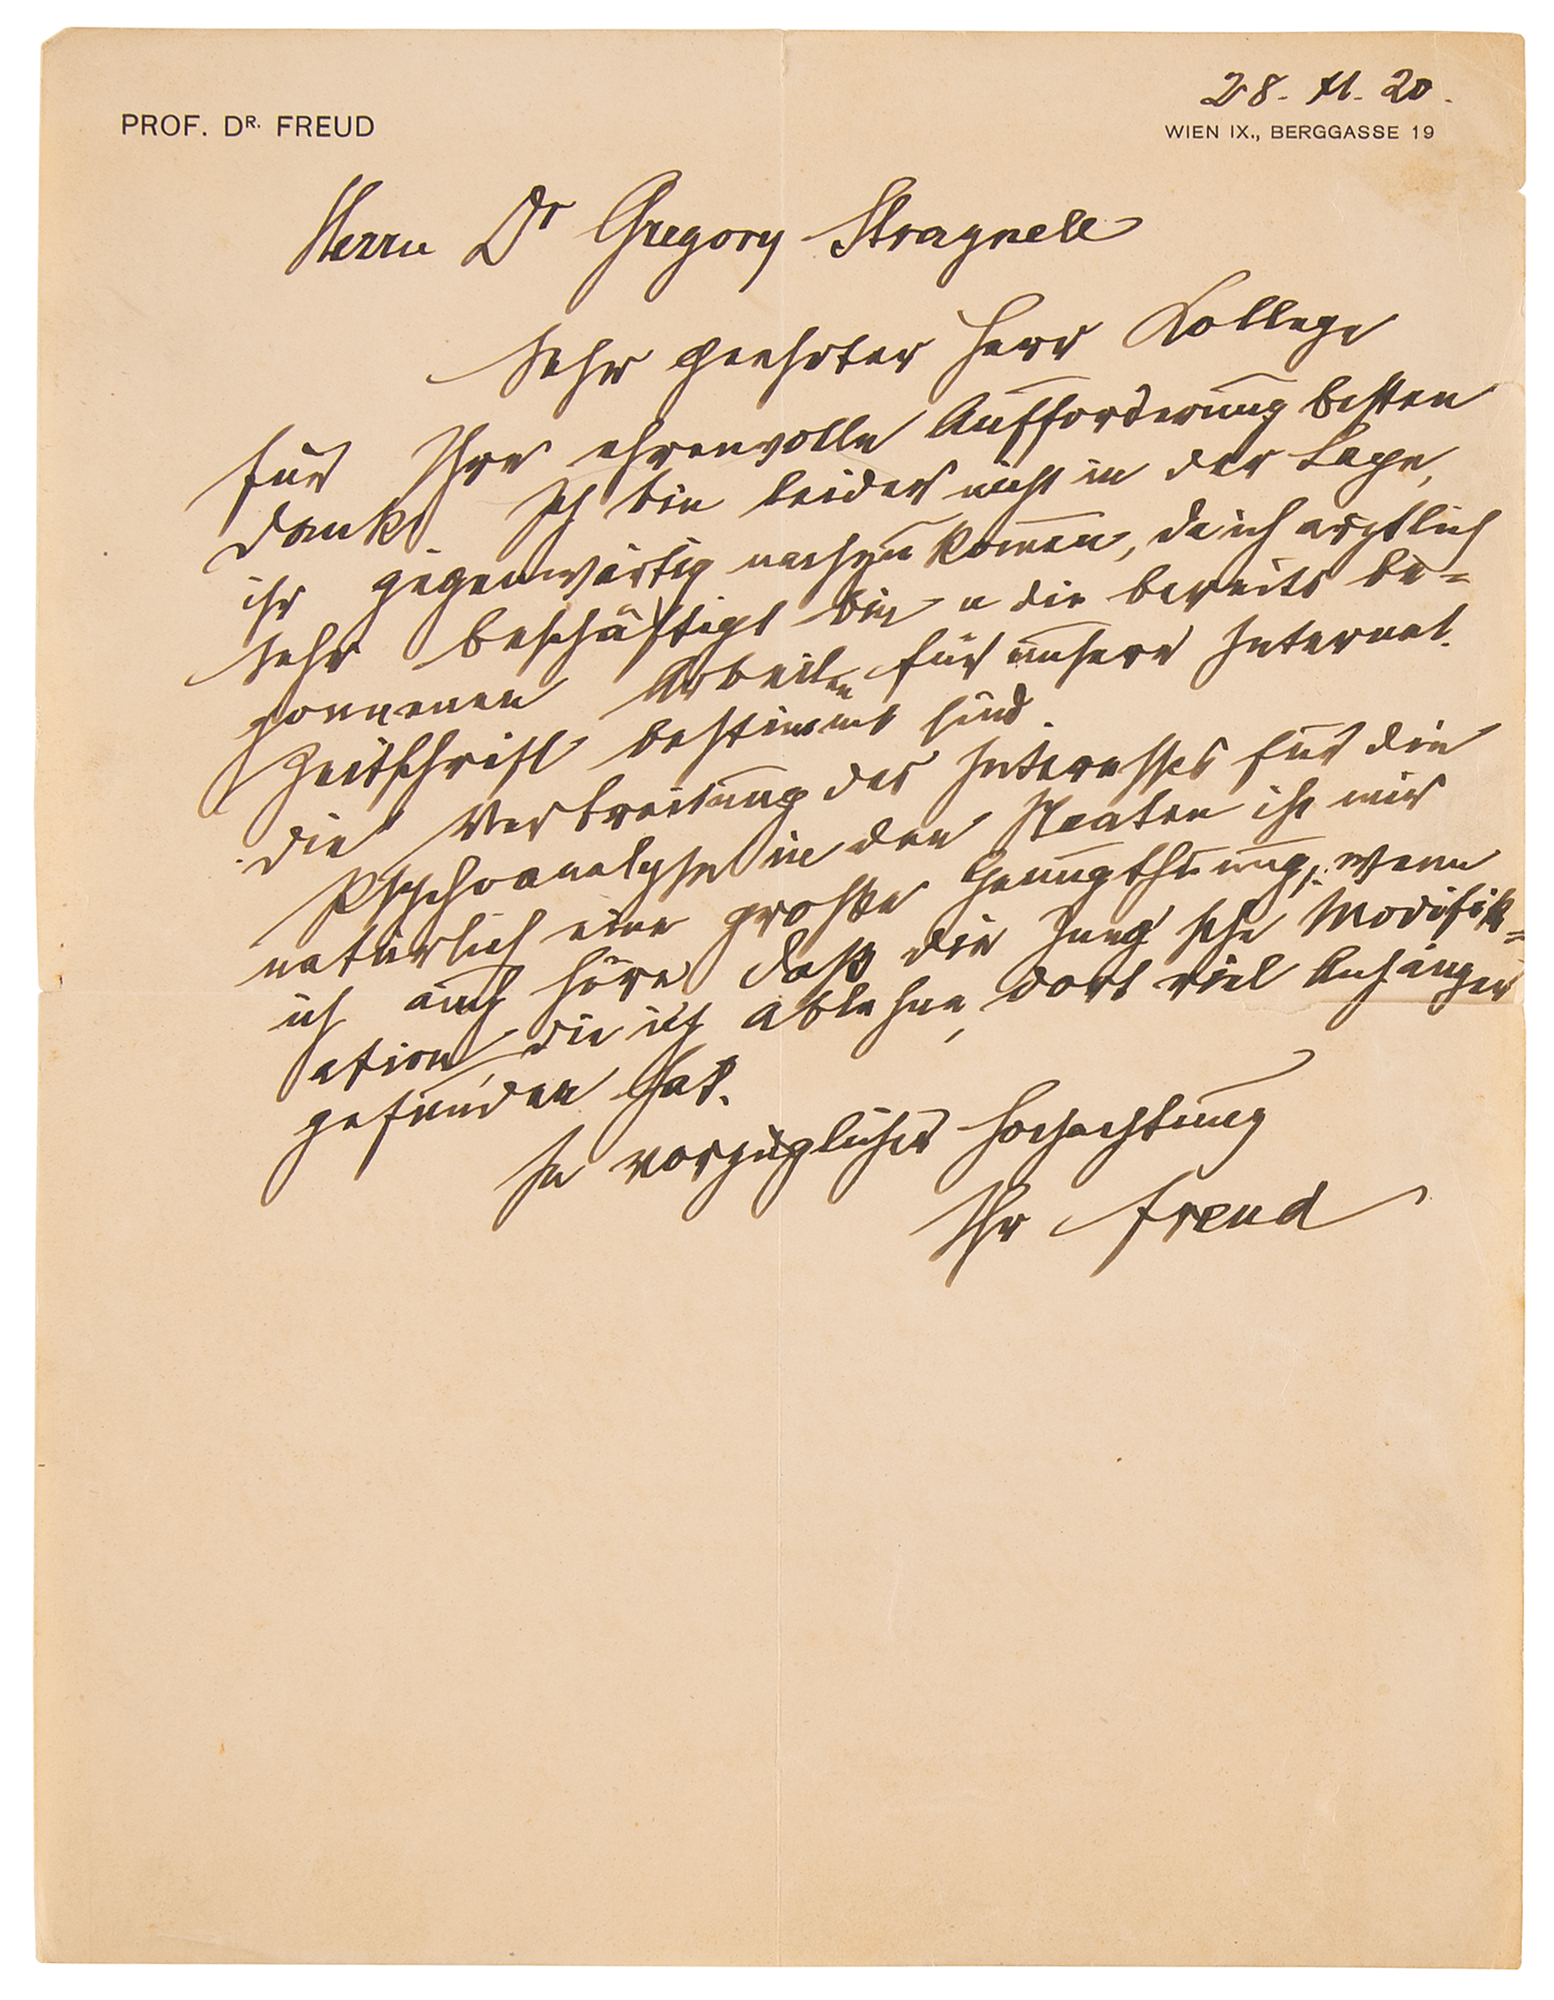 28. XI. 20.
PROF. DR. FREUD
WIEN IX., BERGGASSE 19
Herrn Dr Gregory Stragnell
Sehr geehrter Herr Kollege
Für Ihre ehrenvolle Aufforderung besten
Dank. Ich bin leider nicht in der Lage,
ihr gegenwärtig nachzukommen, da ich ärztlich
sehr beschäftigt bin u die bereits be=
gonnenen Arbeiten für unsere Internat.
Zeitschrift bestimmt sind.
Die Verbreitung des Interesses für die
Psychoanalyse in den Staaten ist mir
natürlich eine große Genugthuung, wenn
ich auch höre, daß die Jung'sche Modifik=
ation, die ich ablehne, dort viel Anhänger
gefunden hat.
In vorzüglicher Hochachtung
Ihr Freud